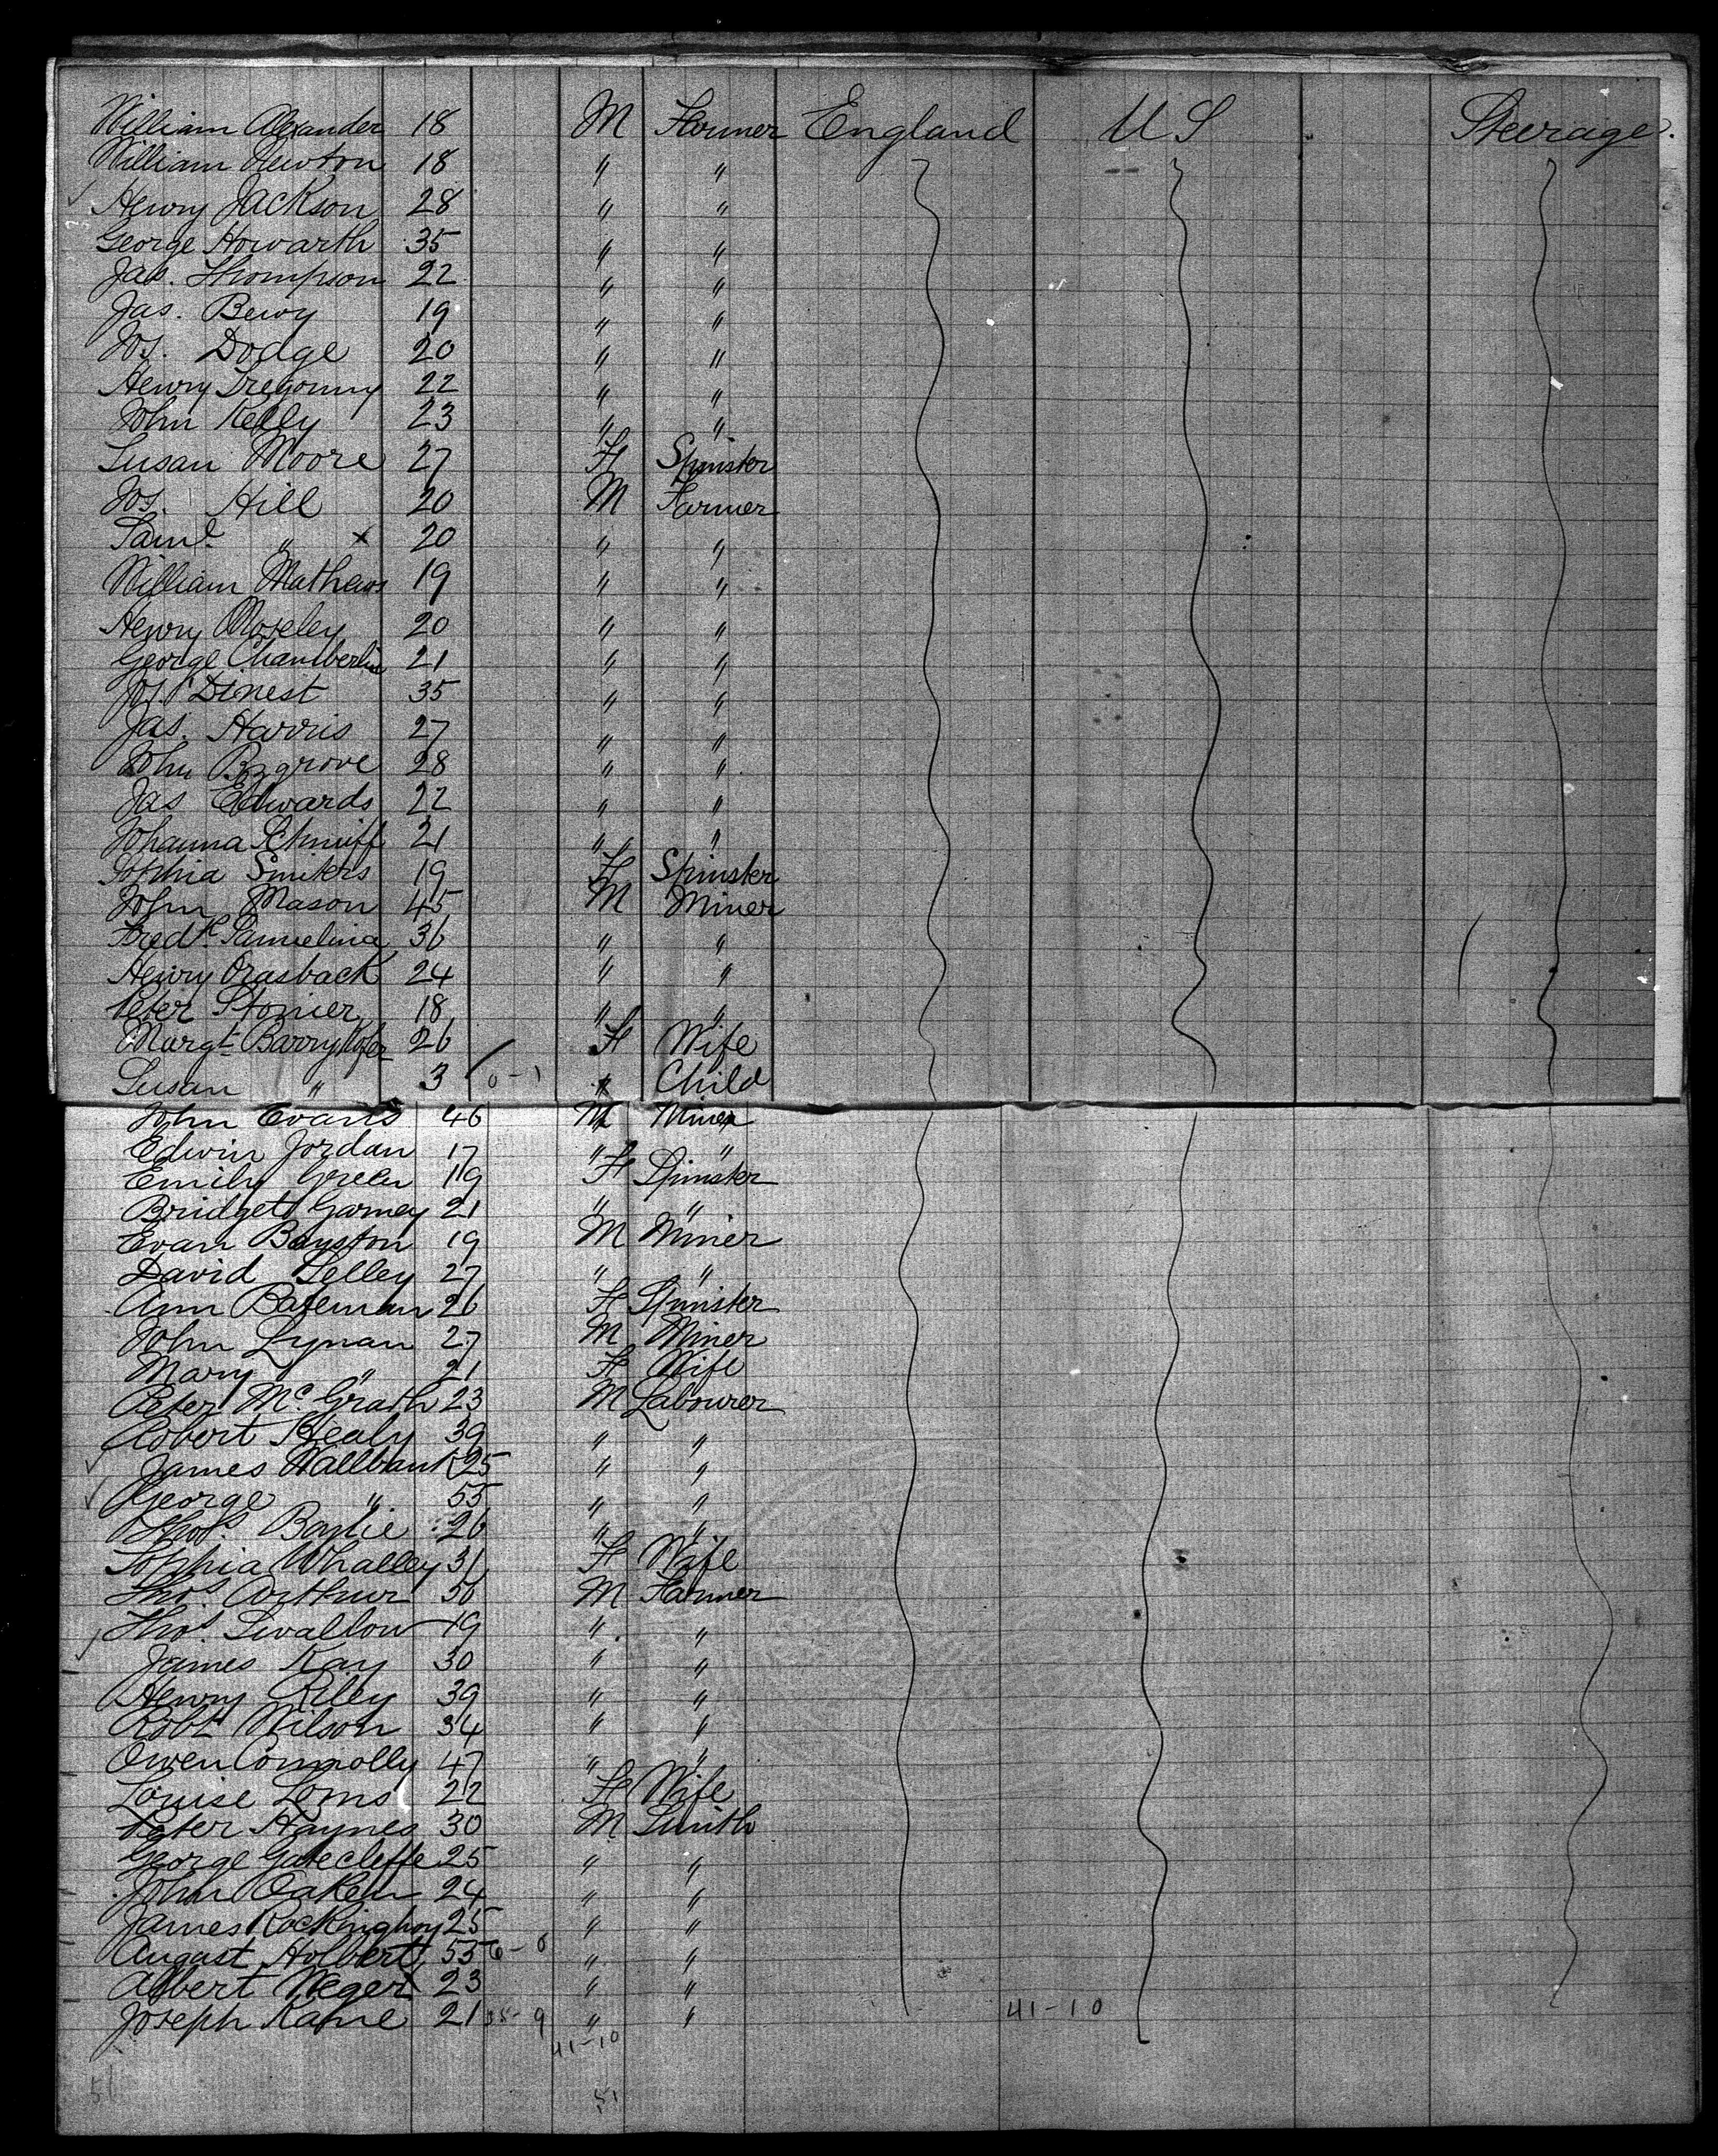 William Alexander 18 M Farmer England US Steerage.
William Newton 18 " "
Henry Jackson 28 " "
George Howarth 35 " "
Jas. Thompson 22 " "
Jas. Bewy 19 " "
Jos. Dodge 20 " "
Henry Tregonny 22 " "
John Kelly 23 " "
Susan Moore 27 F Spinster
Jos. Hill 20 M Farmer
Saml. " x 20 " "
William Mathews 19 " "
Henry Moseley 20 " "
George Chamberlin 21 " "
Jos. Dinest 35 " "
Jas. Harris 27 " "
John Bzgrove 28 " "
Jas Edwards 22 " "
Johanna Schniff 21 " "
Sophia Smiters 19 F Spinster
John Mason 45 M Miner
Fredk. 36 " "
Henry Orasback 24 " "
Peter Stonier 18 " "
Margt. 26 F Wife
Susan " 3 0-1 " Child
John Evans 46 M Miner
Edwin Jordan 17 " "
Emily Green 19 F Spinster
Bridget Garney 21 " "
Evan Bayston 19 M Miner
David Selley 27 " "
Ann Bateman 26 F Spinster
John Lynan 27 M Miner
Mary " 21 F Wife
Peter Mc Grath 23 M Labourer
Robert Healy 39 " "
James Wallbank 25 " "
George " 55 " "
Thos. Baylie 26 " "
Sophia Whalley 31 F Wife
Thos. Arthur 56 M Farmer
Thos. Swallow 19 " "
James Kay 30 " "
Henry Riley 39 " "
Robt Wilson 34 " "
Owen Connolly 47 " "
Louise Loms 22 F Wife
Peter Haynes 30 M Smith
George Gatecliffe 25 " "
John Oaken 24 " "
James 25 " "
August Holbert 55 6-0 " "
Albert Neger 23 " "
Joseph Kane 21 35-9 " " 41-10
41-10
51 51